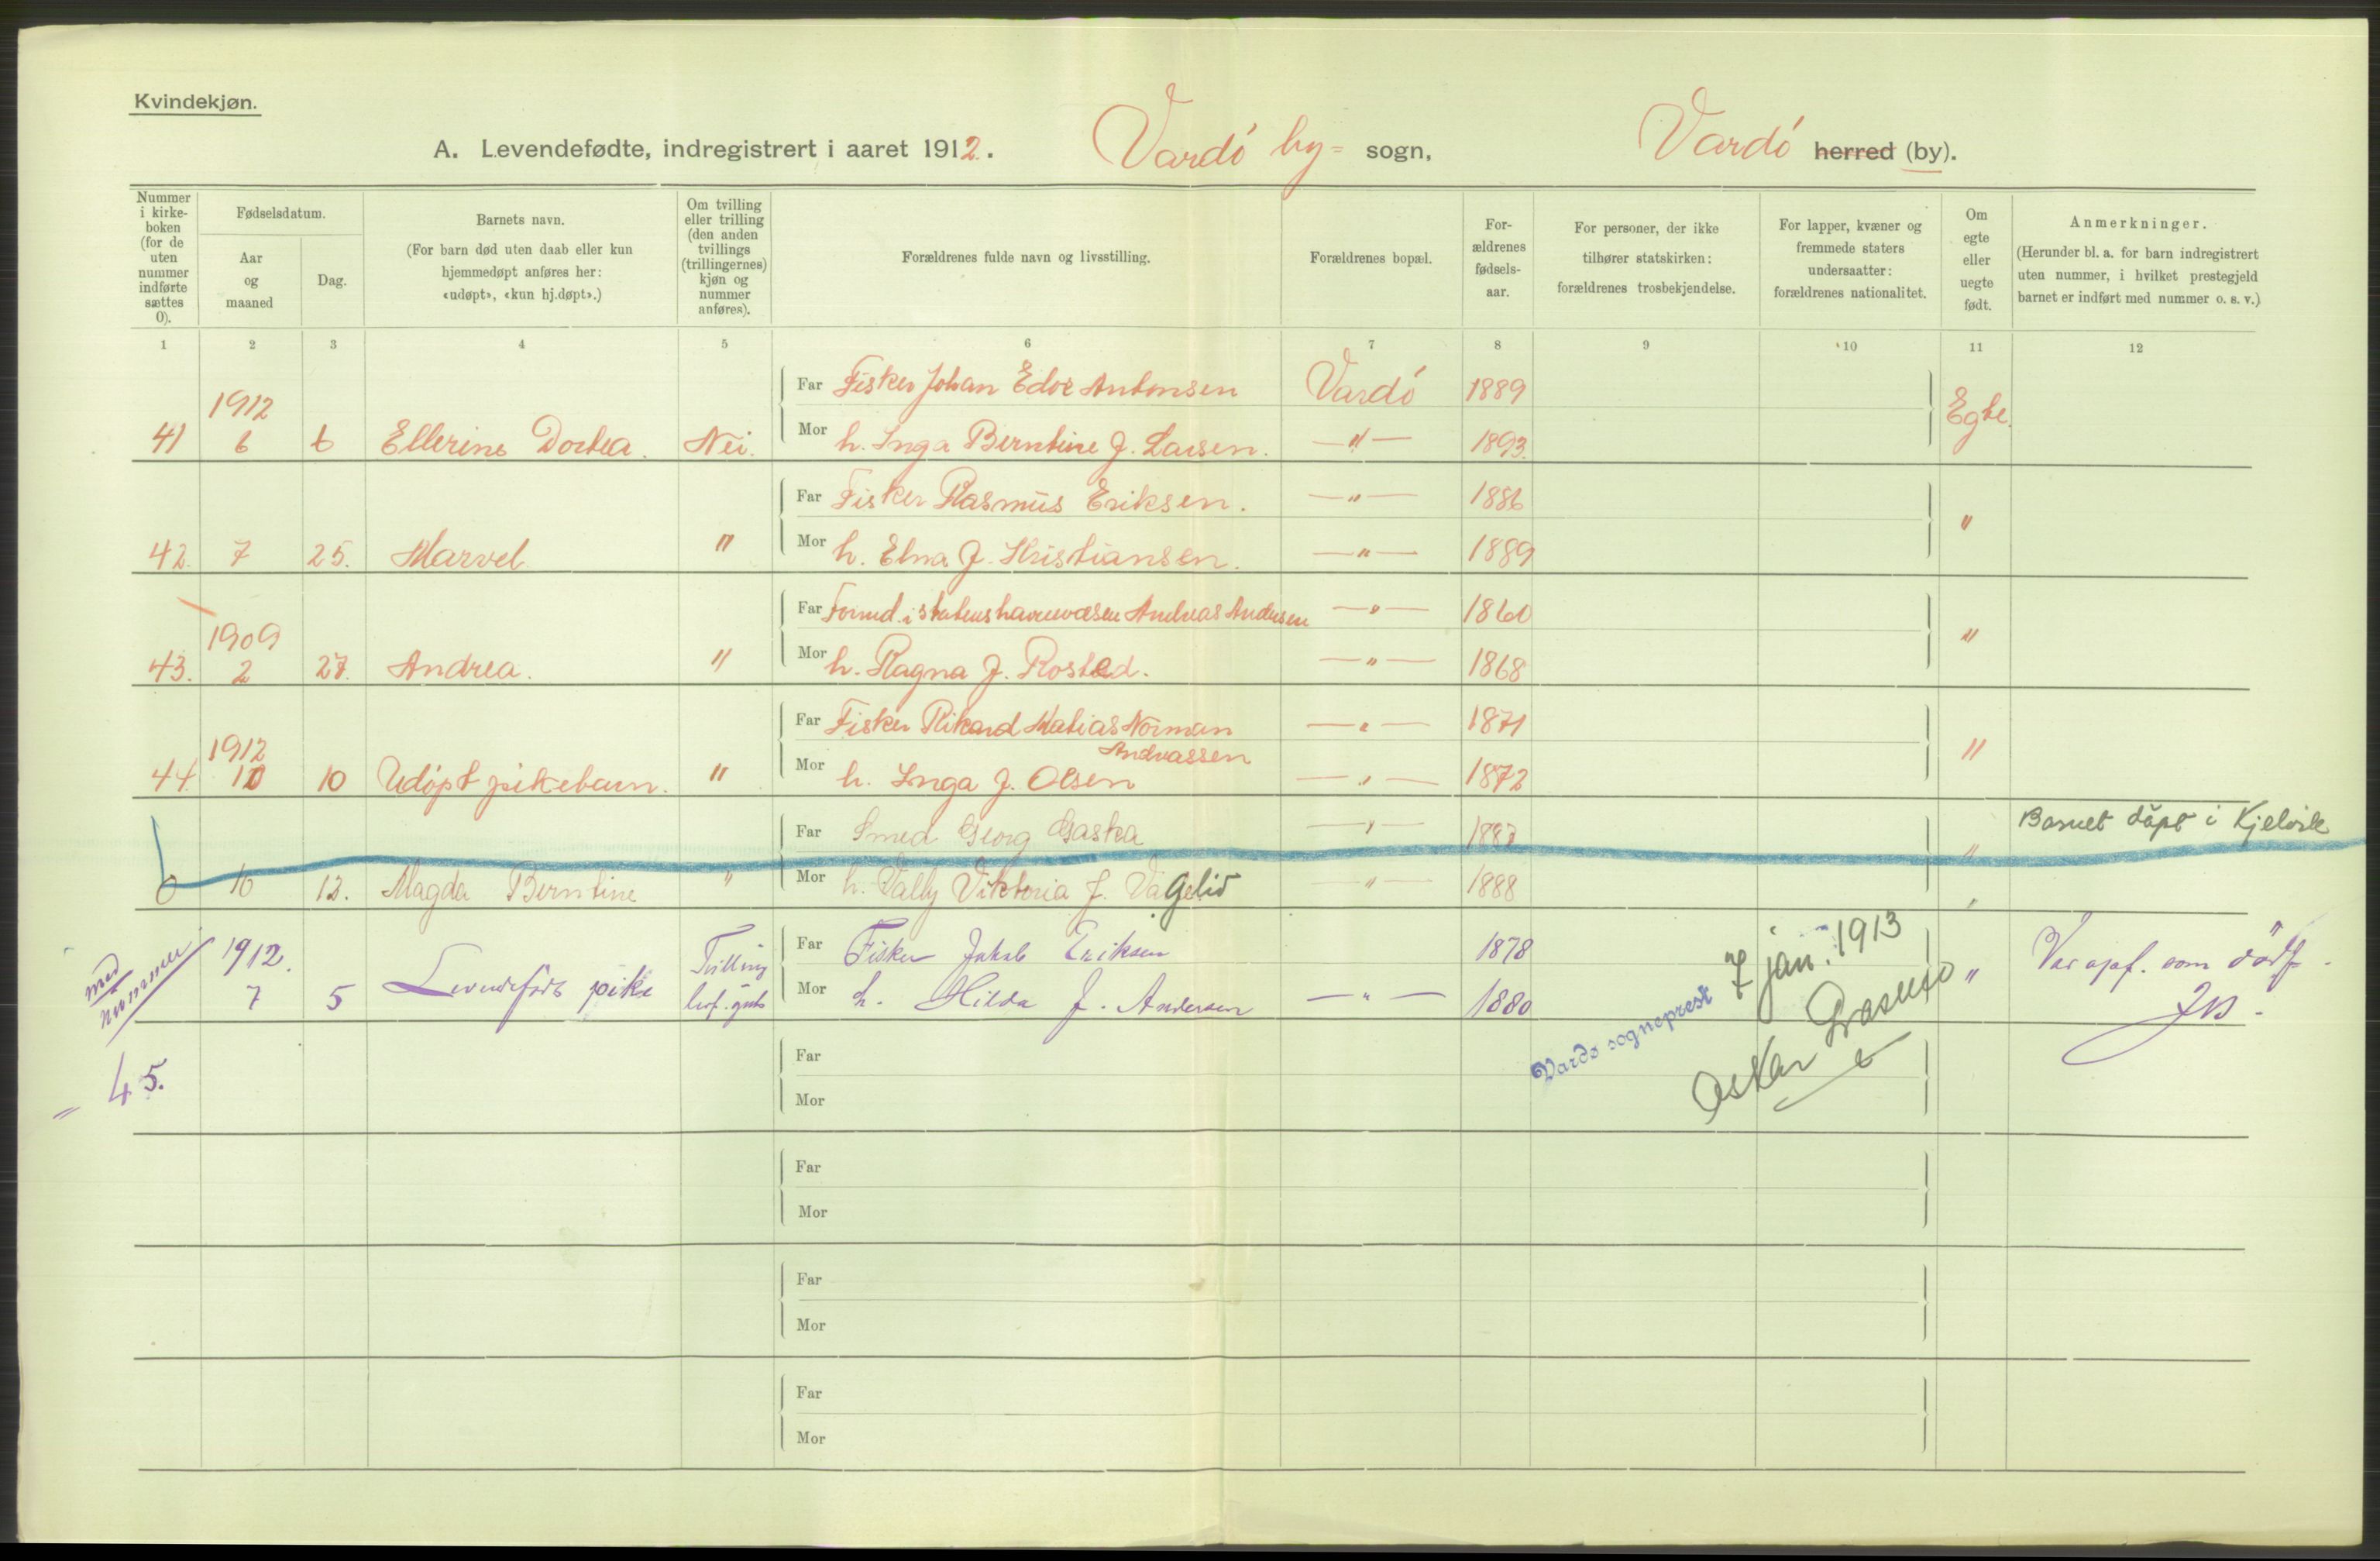 Kvindekjøn.
A. Levendefødte, indregistrert i aaret 1912. Vardö by= sogn, Vardö herred (by).
Nummer i kirke-boken (for de uten nummer indførte sættes 0).
Fødselsdatum.
Aar og maaned
Dag.
Barnets navn.
(For barn død uten daab eller kun hjemmedøpt anføres her: «udøpt», «kun hj.døpt».)
Om tvilling eller trilling (den anden tvillings (trillingernes) kjøn og nummer anføres).
Forældrenes fulde navn og livsstilling.
Forældrenes bopæl.
For-ældrenes fødsels-aar.
For personer, der ikke tilhører statskirken: forældrenes trosbekjendelse.
For lapper, kvæner og fremmede staters undersaatter: forældrenes nationalitet.
Om egte eller uegte født.
Anmerkninger.
(Herunder bl. a. for barn indregistrert uten nummer, i hvilket prestegjeld barnet er indført med nummer o. s. v.)
1 2 3 4 5 6 7 8 9 10 11 12
Far Fisker Johan Edor Antonsen Vardö 1889
1912 Egte.
41 6 6 Ellerine Dortea. Nei. Mor h. Inga Berntine J. Larsen. —"— 1893.
Far Fisker Rasmus Eriksen. —"— 1886
42. 7 25. Marvel " Mor h. Elna J. Kristiansen. —"— 1889 "
Far Formd. i statens havnevæsen Andreas Andersen —"— 1860
1909
43. 2 27. Andrea. " Mor h. Ragna J. Rosted. —"— 1868 "
Far Fisker Rikard Matias Norman —"— 1871
Andreassen
1912
44. 10 10 Udöpt pikebarn. " Mor h. Inga J. Olsen —"— 1872 "
Far Smed Georg Gaska —"— 1887 " Barnet döpt i Kjelvik
0 10 12. Magda Berntine " Mor h. Vally Viktoria J. Vagelid —"— 1888
med nummer
1912. Tvilling Far Fisker Jakob Eriksen 1878
7 5 Levendefödt pike Mor h. Hilda J. Andersen —"— 1880 " Var opf. som dödf.
7 jan. 1913
Vardø sogneprest
Oskar
45.
Far
Mor
Far
Mor
Far
Mor
Far
Mor